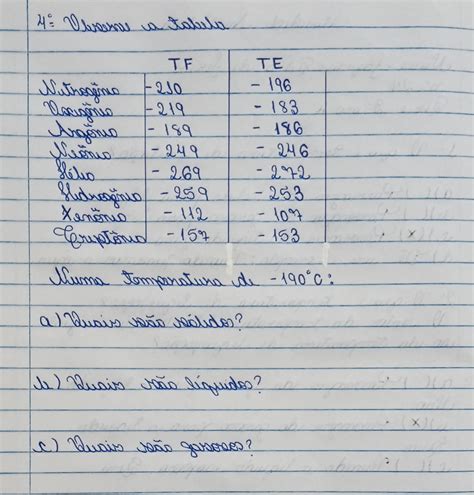 4º Observe a tabela
TF TE
Nitrogênio -210 -196
Oxigênio -219 -183
Argônio -189 -186
Neônio -249 -246
Hélio -269 -272
Hidrogênio -259 -253
Xenônio -112 -107
Criptônio -157 -153
Numa temperatura de -190°C:
a) Quais são sólidos?
b) Quais são líquidos?
c) Quais são gasosos?